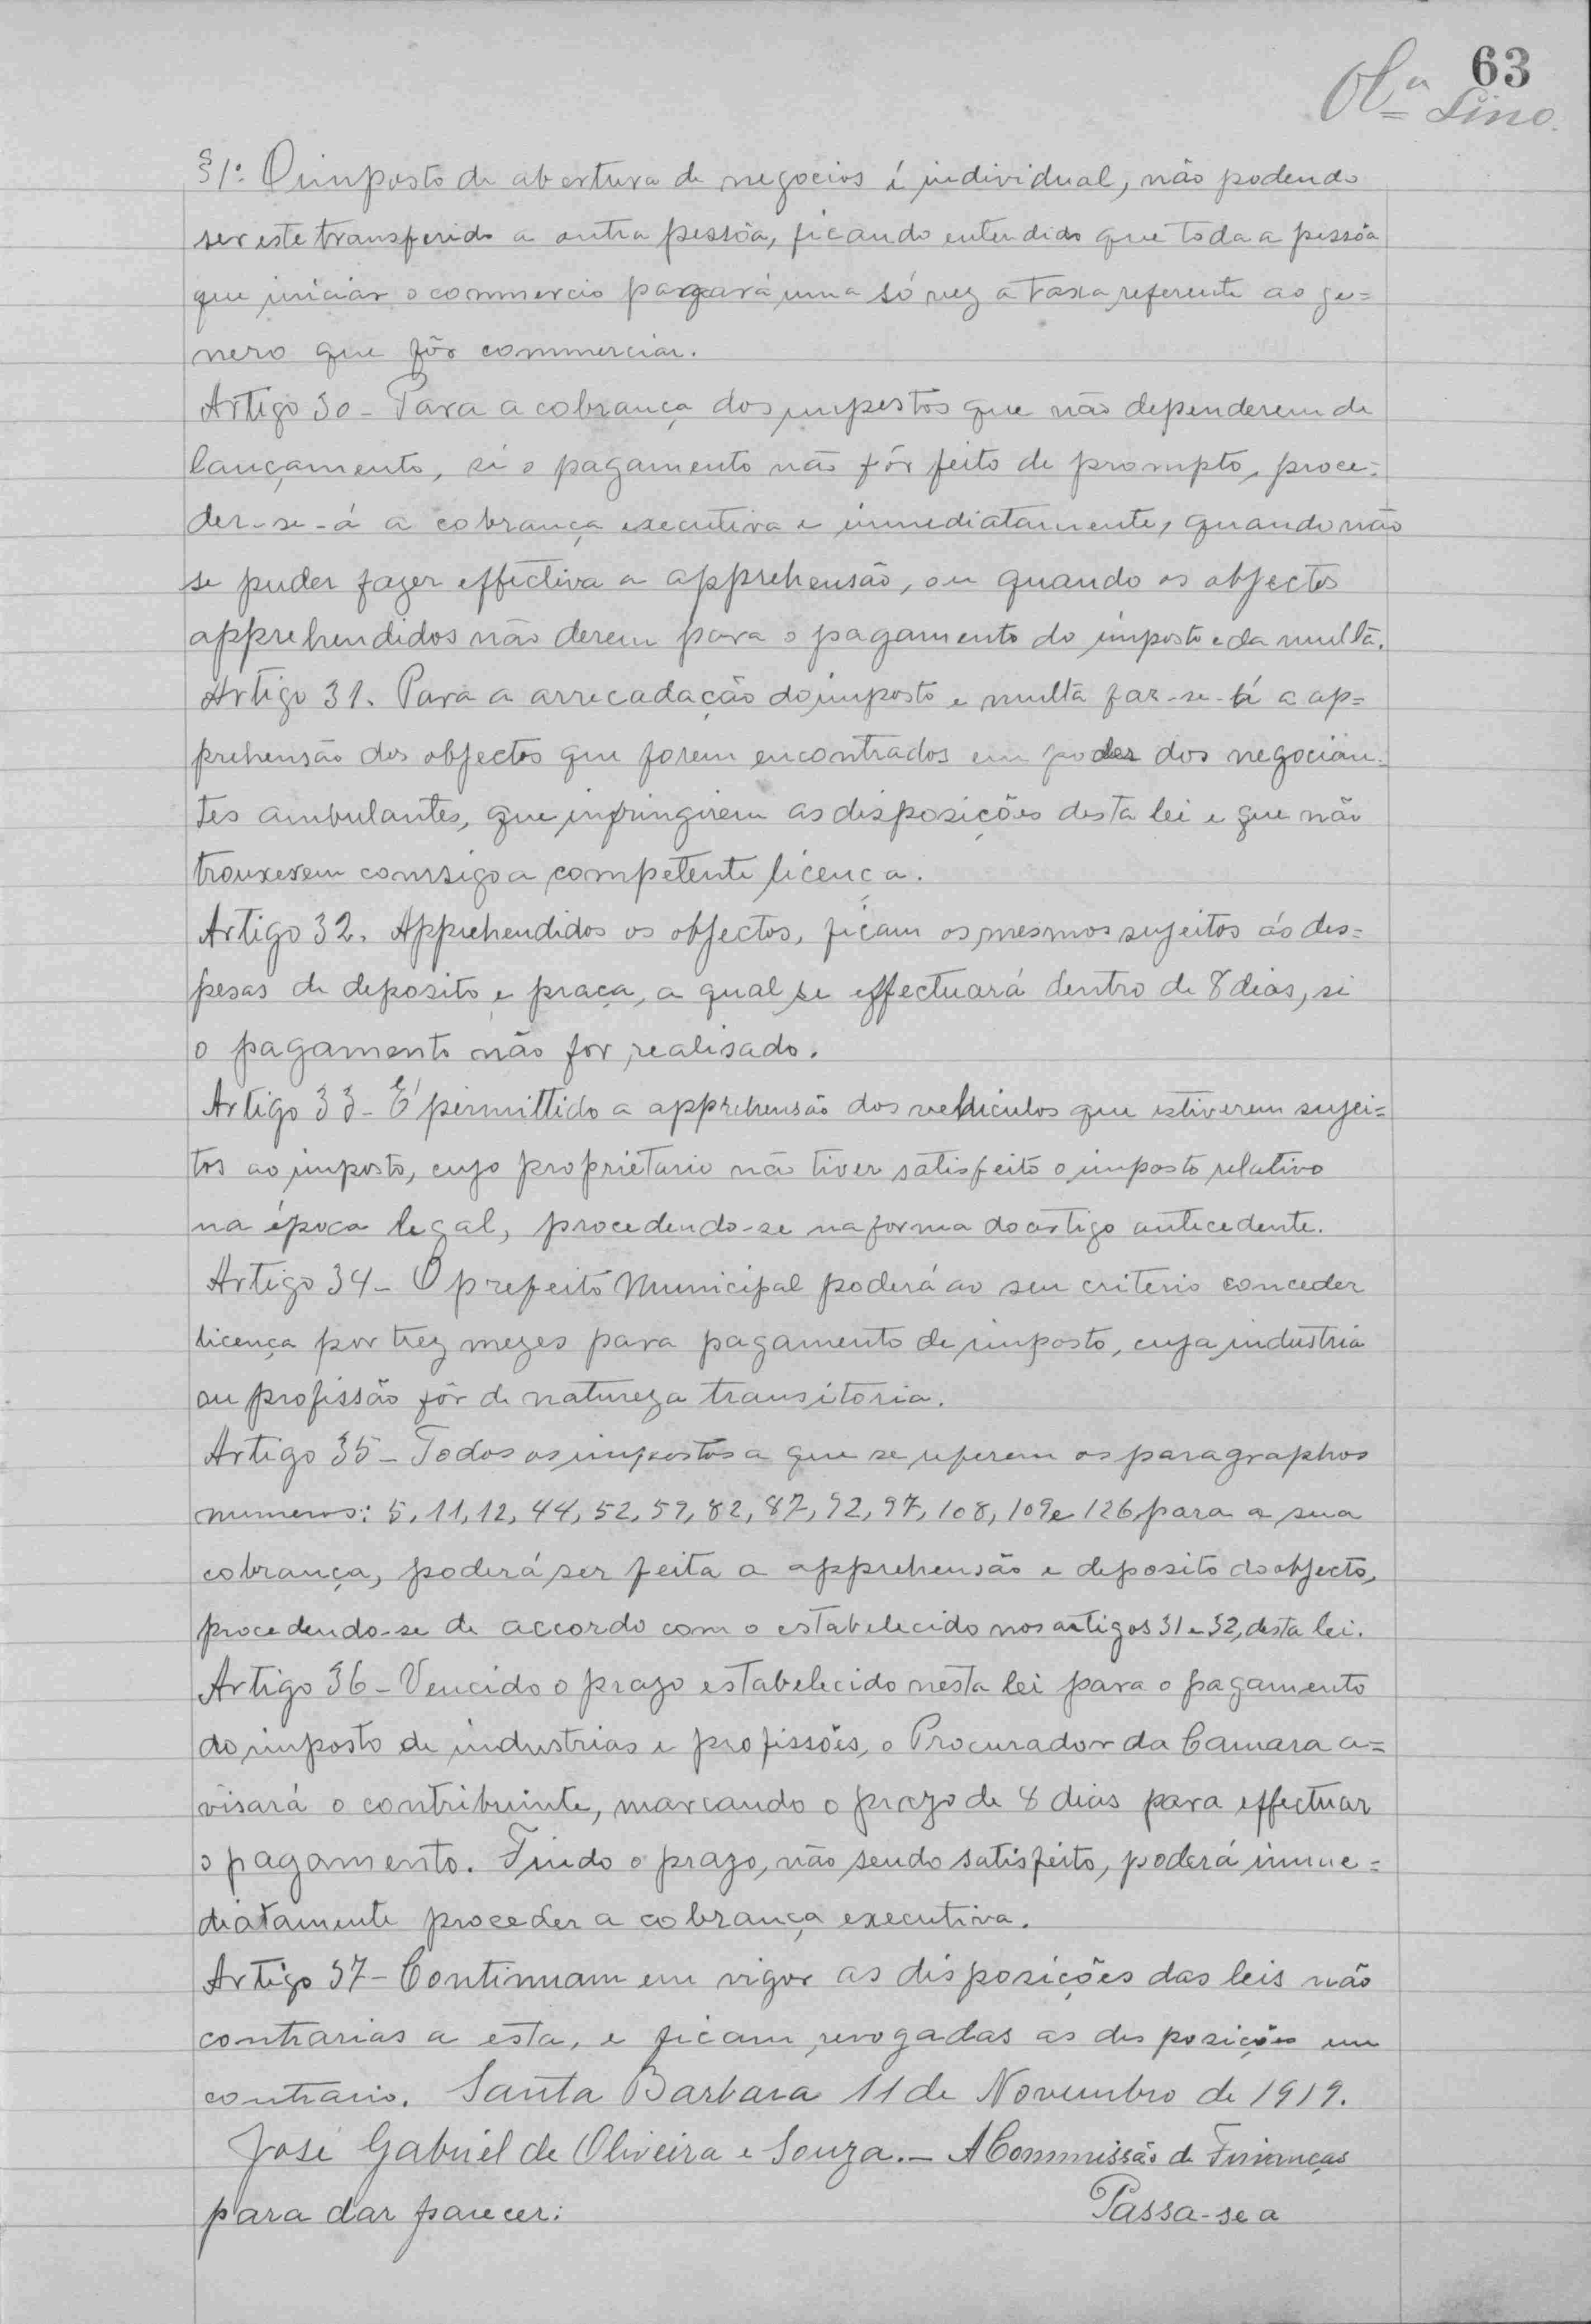 63
Olª Lino.
§1º O imposto de abertura de negocios é individual, não podendo
ser este transferido a outra pessôa, ficando entendido que toda a pessôa
que iniciar o commercio pagará uma só vez a taxa referente ao ge=
nero que fôr commerciar.
Artigo 30 - Para a cobrança dos impostos que não dependerem de
lançamento, si o pagamento não fôr feito de prompto, proce=
der-se-á a cobrança executiva e immediatamente, quando não
se puder fazer effectiva a apprehensão, ou quando os objectos
apprehendidos não derem para o pagamento do imposto e da multa.
Artigo 31. Para a arrecadação do imposto e multa far-se-á a ap=
prehensão dos objectos que forem encontrados em poder dos negocian=
tes ambulantes, que infringirem as disposições desta lei e que não
trouxerem comsigo a competente licença.
Artigo 32. Apprehendidos os objectos, ficam os mesmos sujeitos ás des=
pesas de deposito e praça, a qual se effectuará dentro de 8 dias, si
o pagamento não for realisado.
Artigo 33 - É permittido a apprehensão dos vehiculos que estiverem sujei=
tos ao imposto, cujo proprietario não tiver satisfeito o imposto relativo
na época legal, procedendo-se na forma do artigo antecedente.
Artigo 34 - O prefeito Municipal poderá ao seu criterio conceder
licença por trez mezes para pagamento de imposto, cuja industria
ou profissão fôr de natureza transitoria.
Artigo 35 - Todos os impostos a que se referem os paragraphos
numeros: 5, 11, 12, 44, 52, 59, 82, 87, 92, 97, 108, 109 e 126, para a sua
cobrança, poderá ser feita a apprehensão e deposito do objecto,
procedendo-se de accordo com o estabelecido nos artigos 31 e 32, desta lei.
Artigo 36 - Vencido o prazo estabelecido nesta lei para o pagamento
do imposto de industrias e profissões, o Procurador da Camara a=
visará o contribuinte, marcando o prazo de 8 dias para effectuar
o pagamento. Findo o prazo, não sendo satisfeito, poderá imme=
diatamente proceder a cobrança executiva.
Artigo 37 - Continuam em vigor as disposições das leis não
contrarias a esta, e ficam revogadas as disposições em
contrario. Santa Barbara 11 de Novembro de 1919.
José Gabriel de Oliveira e Souza. - A Commissão de Finanças
para dar parecer: Passa-se a